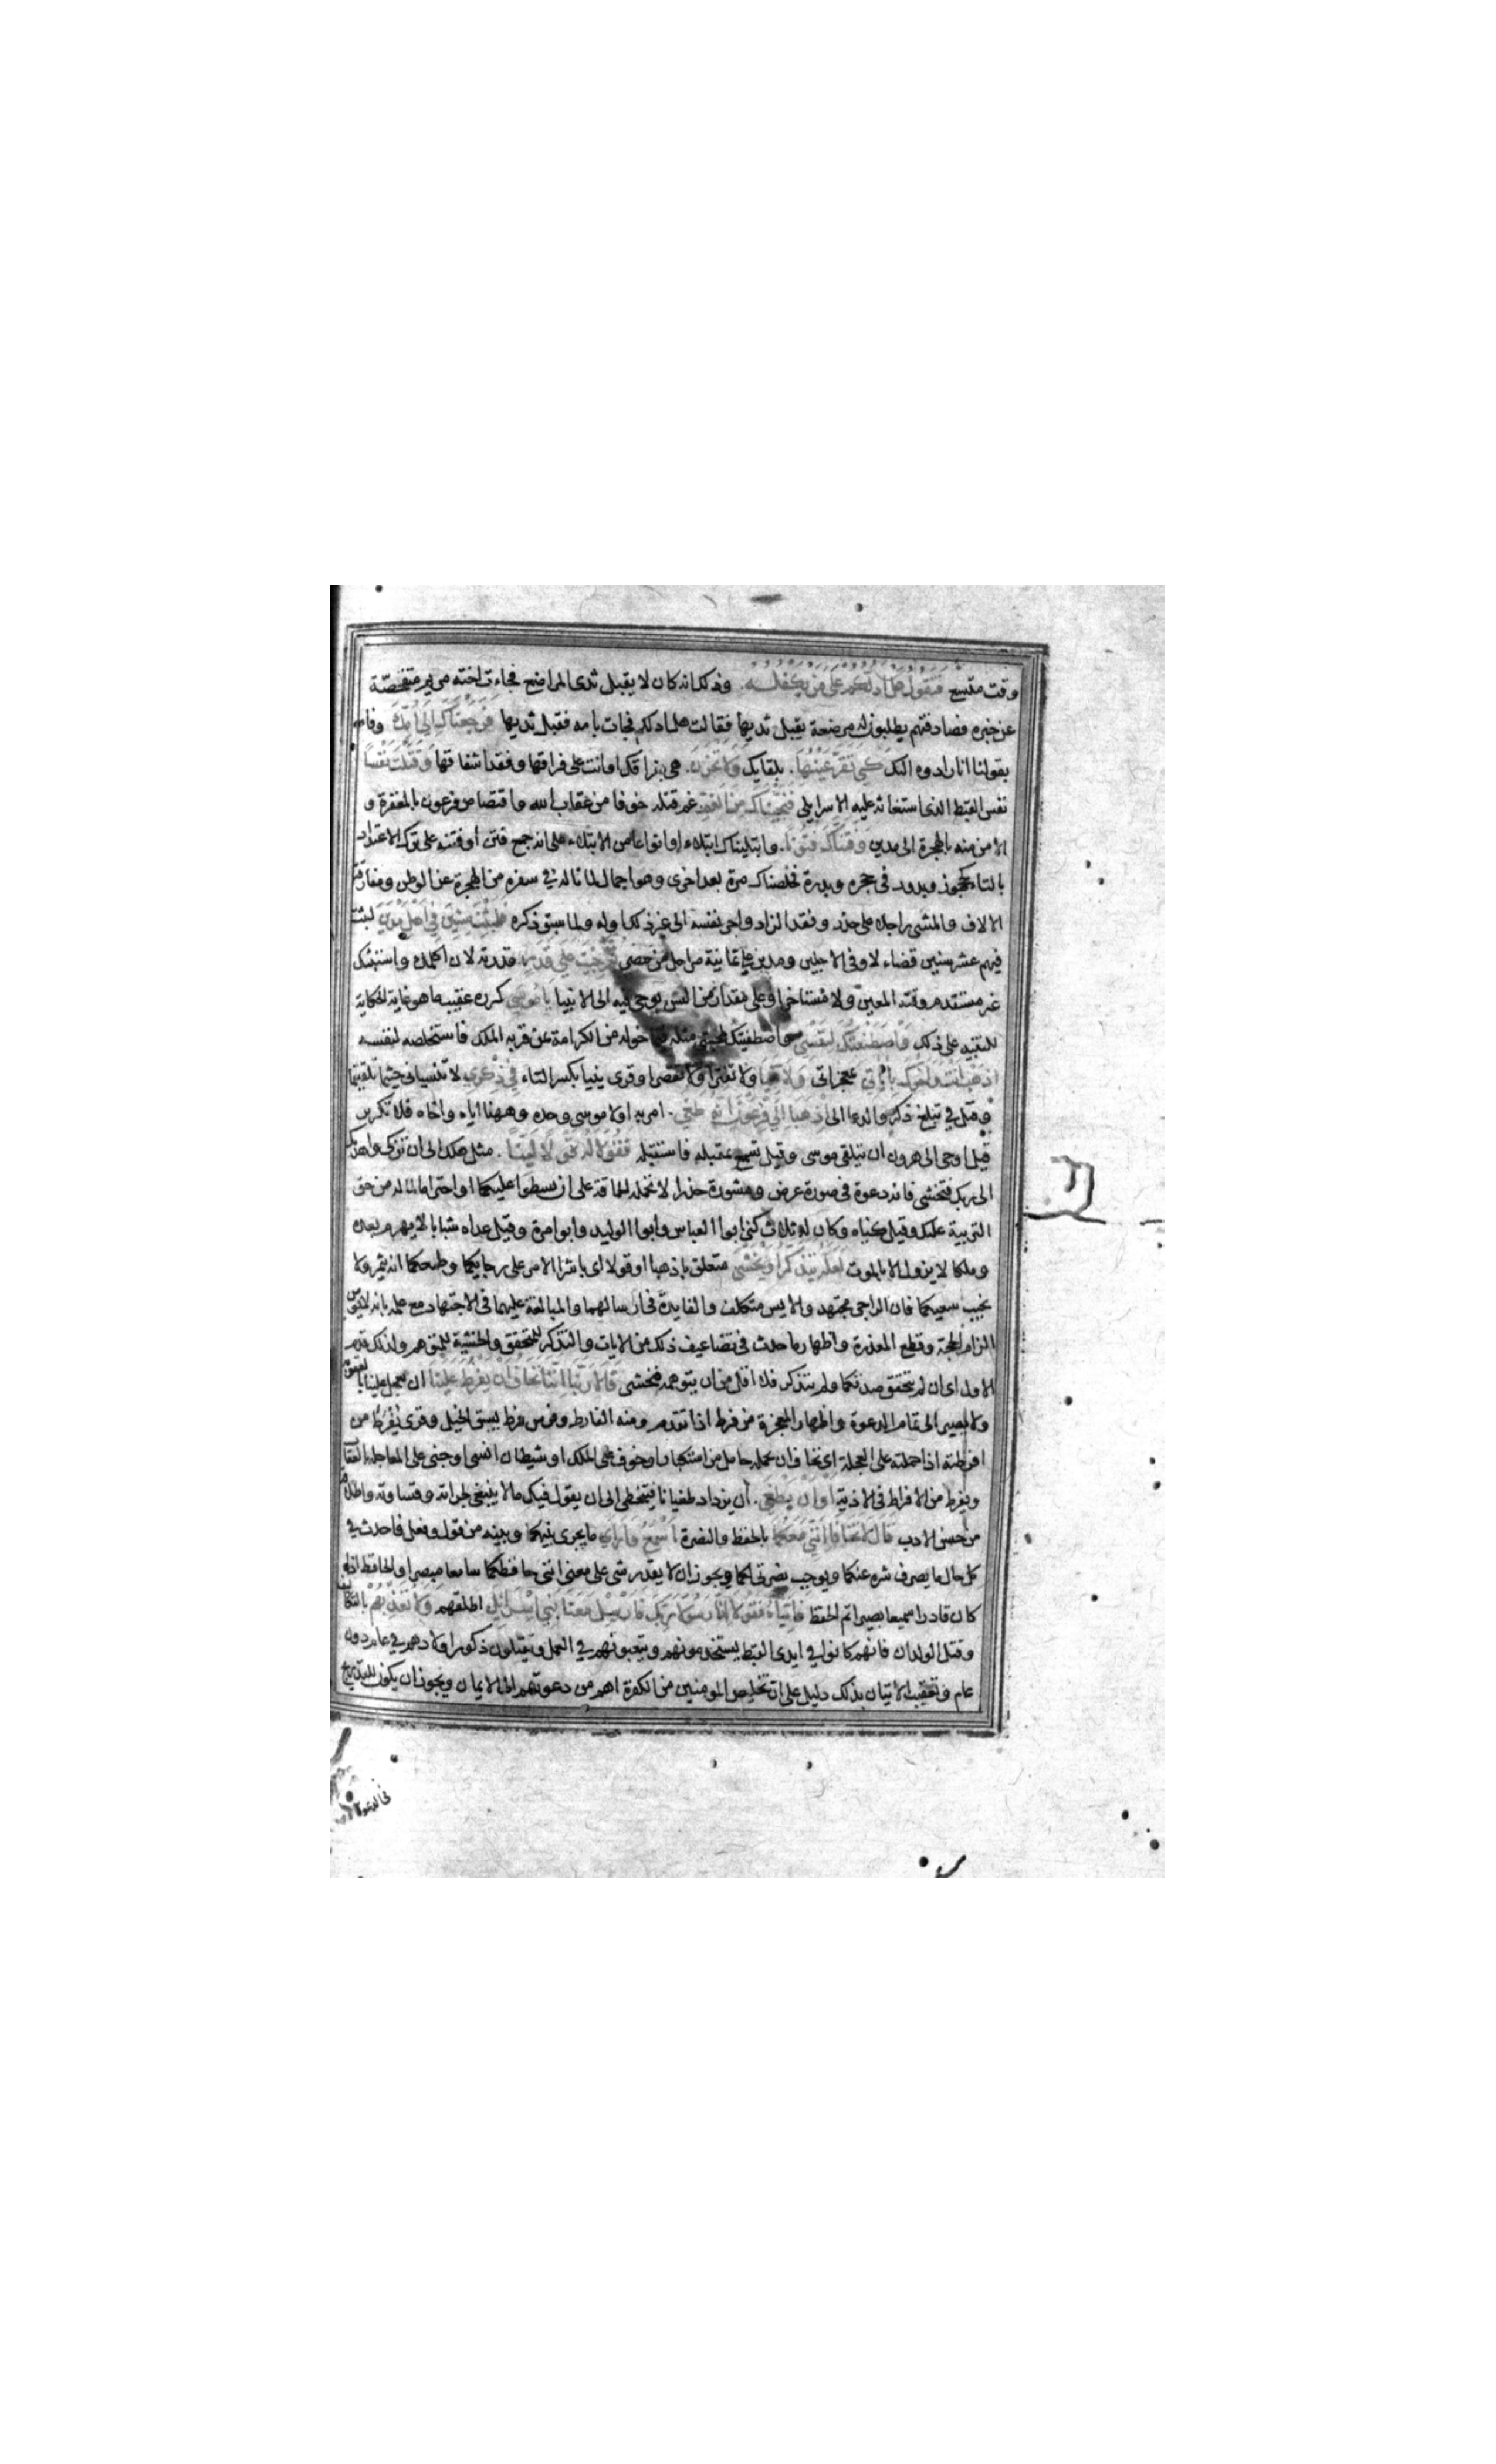 وقت متسع فتقول هل ادلكم على من يكفله. وذلك انه كان لا يقبل ثدى المراضع فجاءت اخته مريم متفحصة
عن خبره فصادفتهم يطلبون له مرضعة يقبل ثديها فقالت هل ادلكم فجات بامه فقبل ثديها فرجعناك الى امك وفاء
بقولنا انا رادوه اليك كى تقر عينها. بلقايك ولا تحزن. هى بفراقك او انت على فراقها وفقد اشفاقها وقتلت نفسا
نفس القبطى الذى استغاثه عليه الاسرايلى فنجيناك من الغم غم قتله خوفا من عقاب الله واقتصاص فرعون بالمغفرة و
الامن منه بالهجرة الى مدين وفتناك فتونا. وابتليناك ابتلاء او انواعا من الابتلاء على انه جمع فتن او فتنه على ترك الاعتداد
بالتا كحجوز وبدور فى حجره وبدرة فخلصناك مرة بعد اخرى وهو اجمال لما ناله فى سفره من الهجرة عن الوطن ومفارقة
الالاف والمشى راجلا على حذر وفقد الزاد واجر نفسه الى غير ذلك اوله ولما سبق ذكره فلبثت سنين فى اهل مدين لبثت
فيهم عشر سنين قضاء لاوفى الاجلين ومدين على ثمانية مراحل من مصر ثم جئت على قدر قدرته لان اكلمك واستنبئك
غير مستقدم وقته المعين ولا مستاخر او على مقدار من السن يوحى فيه الى الانبيا يا موسى كرره عقيب ما هو غاية الحكاية
للتنبيه على ذلك واصطنعتك لنفسى واصطفيتك لمحبتى مثله فيما خوله من الكرامة عن قربه الملك فاستخلصه لنفسه
اذهب انت واخوك باياتى بمعجزاتى ولا تنيا ولا تفترا ولا تقصرا وقرى ينيا بكسر التاء فى ذكرى لا تنسيانى حيثما تقلبتما
وقيل فى تبليغ ذكرى والدعا الى اذهبا الى فرعون انه طغى. امر به اولا موسى وحده وههنا اياه واخاه فلا تكرير
قيل اوحى الى هرون ان يتلقى موسى وقيل سمع بمقبله فاستقبله فقولا له قولا لينا. مثل هل لك الى ان تزكى واهديك
الى ربك فتخشى فانه دعوة فى صورة عرض ومشورة حذرا لا تحمله الحماقة على ان يسطوا عليكما او احتراما لما له من حق
التربية عليك وقيل كنياه وكان له ثلاث كنى ابوا العباس وابوا الوليد وابوا مرة وقيل عداه شبابا لا يهرم بعده
وملكا لا يزول الا بالموت لعله يتذكر او يخشى متعلق باذهبا او قولا اى باشرا الامر على رجايكما وطمعكما انه يثمر ولا
يخيب سعيكما فان الراجى مجتهد والايس متكلف والفايدة فى ارسالهما والمبالغة عليهما فى الاجتهاد مع علمه بانه لا يؤمن
الزام الحجة وقطع المعذرة واظهار ما حدث فى تضاعيف ذلك من الايات والتذكر للمتحقق والخشية للمتوهم ولذلك قدم
الاول اى ان لم يتحقق صدقكما ولم يتذكر فلا اقل من ان يتوهمه فيخشى قالا ربنا اننا نخاف ان يفرط علينا ان يعجل علينا بالعقوبة
ولا يصير الى تمام الدعوة واظهار المعجزة من فرط اذا تقدم ومنه الفارط وفرس فرط يسبق الخيل وقرى يفرط من
افرطته اذا حملته على العجلة اى نخاف ان يحمله حامل من استكبار او خوف على الملك او شيطان انسى او جنى على المعاجلة بالعقاب
ويفرط من الافراط فى الاذية او ان يطغى. ان يزداد طغيانا فيتخطى الى ان يقول فيك ما لا ينبغى لجراته وقساوته واطلاقه
من حسن الادب قال لا تخافا اننى معكما بالحفظ والنصرة اسمع وارى ما يجرى بينكما وبينه من قول وفعل فاحدث فى
كل حال ما يصرف شره عنكما ويوجب نصرتى لكما ويجوز ان لا يقدر شى على معنى اننى حافظكما سامعا مبصرا والحافظ اذا
كان قادرا سميعا بصيرا تم الحفظ فاتياه فقولا انا رسولا ربك فارسل معنا بنى اسرائيل اطلقهم ولا تعذبهم بالتكاليف
وقتل الولدان فانهم كانوا فى ايدى القبط يستخدمونهم ويتعبونهم فى العمل ويقتلون ذكور اولادهم فى عام دون
عام وتعقيب الاتيان بذلك دليل على ان تخليص المومنين من الكفرة اهم من دعوتهم الى الايمان ويجوز ان يكون للتدريج
فى الدعوة